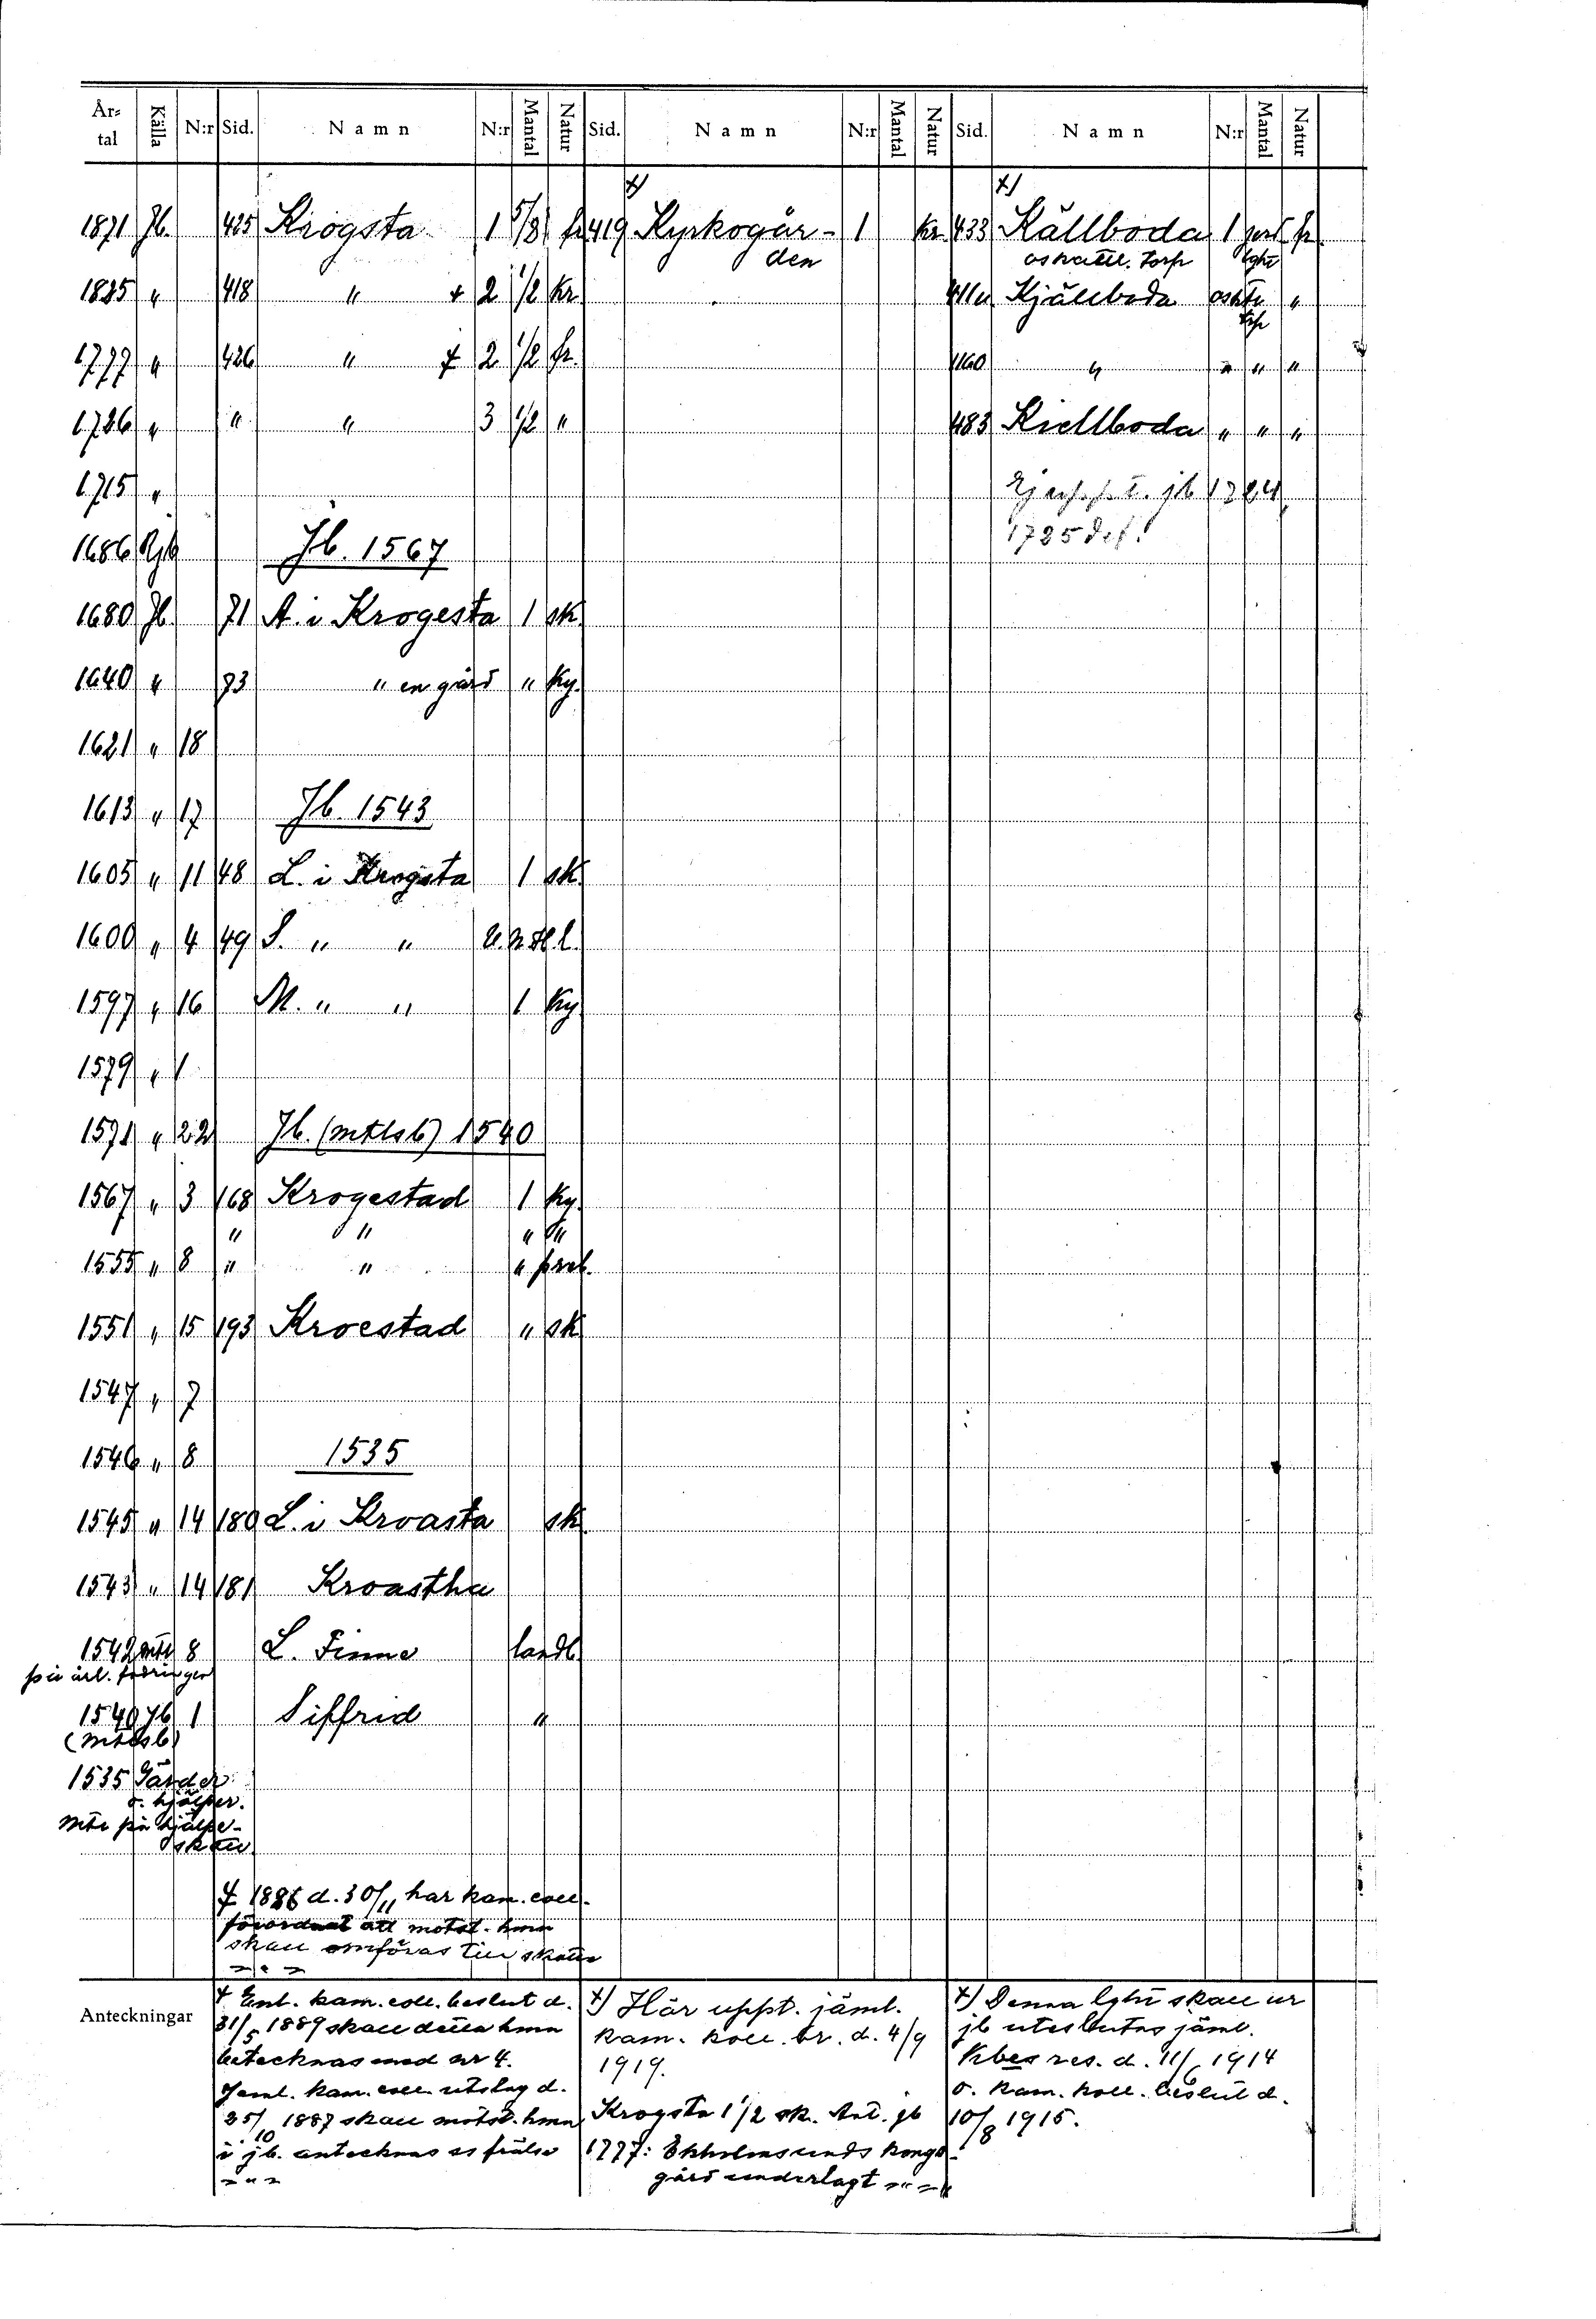 År-tal Källa N:r Sid. Namn N:r Mantal Natur Sid. Namn N:r Mantal Natur Sid. Namn N:r Mantal Natur
x) x)
1871 Jb. 425 Krogsta 1 5/8 fr 419 Kyrkogår- 1 kr. 433 Källboda 1 fr
den oskattl. torp lght
1825 " 418 " + 2 1/2 kr. Kjällboda "
1777 " 426 " 2 1/2 fr. 1160 " " " "
1726 " " " 3 1/2 " 483 Kiellboda " " "
1715 "
1725 def.
1686 Jb. 1567
1680 Jb. 71 A. i Krogesta 1 sk.
1640 " 73 " en gård " Ky.
1621 " 18
1613 " 17 Jb. 1543
1605 " 11 48 L. i Krogsta 1 sk.
1600 " 4 49 S. " "
1597 " 16 M. " " 1 Ky
1579 " 1
1571 " 22 Jb. (mtlsb) 1540
1567 " 3 168 Krogestad 1 Ky.
" " "
1555 " 8 " " "
1551 " 15 193 Kroestad " sk
1547 " 7
1546 " 8 1535
1545 " 14 180 L. i Kroasta sk
1543 " 14 181 Kroastha
1542 8 L. Finne landb.
på årl.
1540 Jb 1 Siffrid "
(mtlsb)
1535 Gärder
o. hjälper.
1886 d. 30/11 har kam. coll.
förordnat att motst. hmn
skall omföras till skatte
Anteckningar
+ Enl. kam. coll. beslut d.
31/5 1889 skall detta hmn
betecknas med nr 4.
Jäml. kam. coll. utslag d.
25/10 1887 skall motst. hmn
i jb. antecknas ss frälse
x) Här uppt. jäml.
kam. koll. br. d. 4/9
1919.
Krogsta 1 1/2 sk. Ant. jb
1777: Ekholmsunds kungs-
gård underlagt
x) Denna lght skall ur
jb uteslutas jäml.
Kbes res. d. 1914
o. kam. koll. beslut d.
10/8 1915.